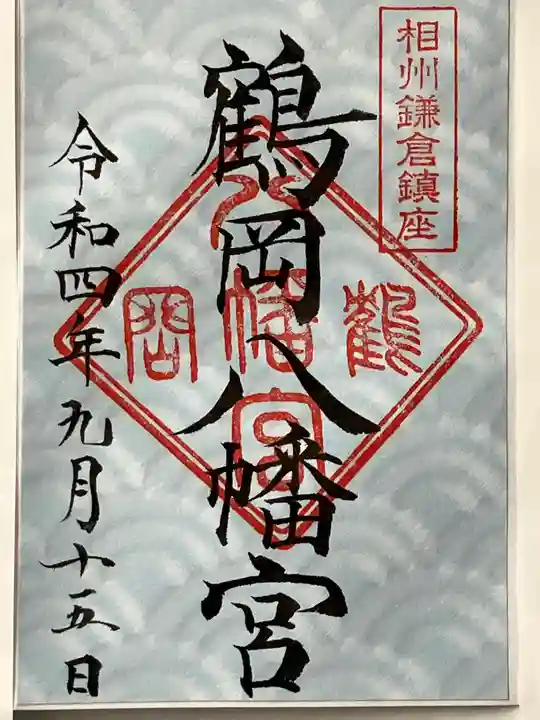 相州鎌倉鎮座
鶴岡八幡宮
鶴岡
八幡宮
令和四年九月十五日